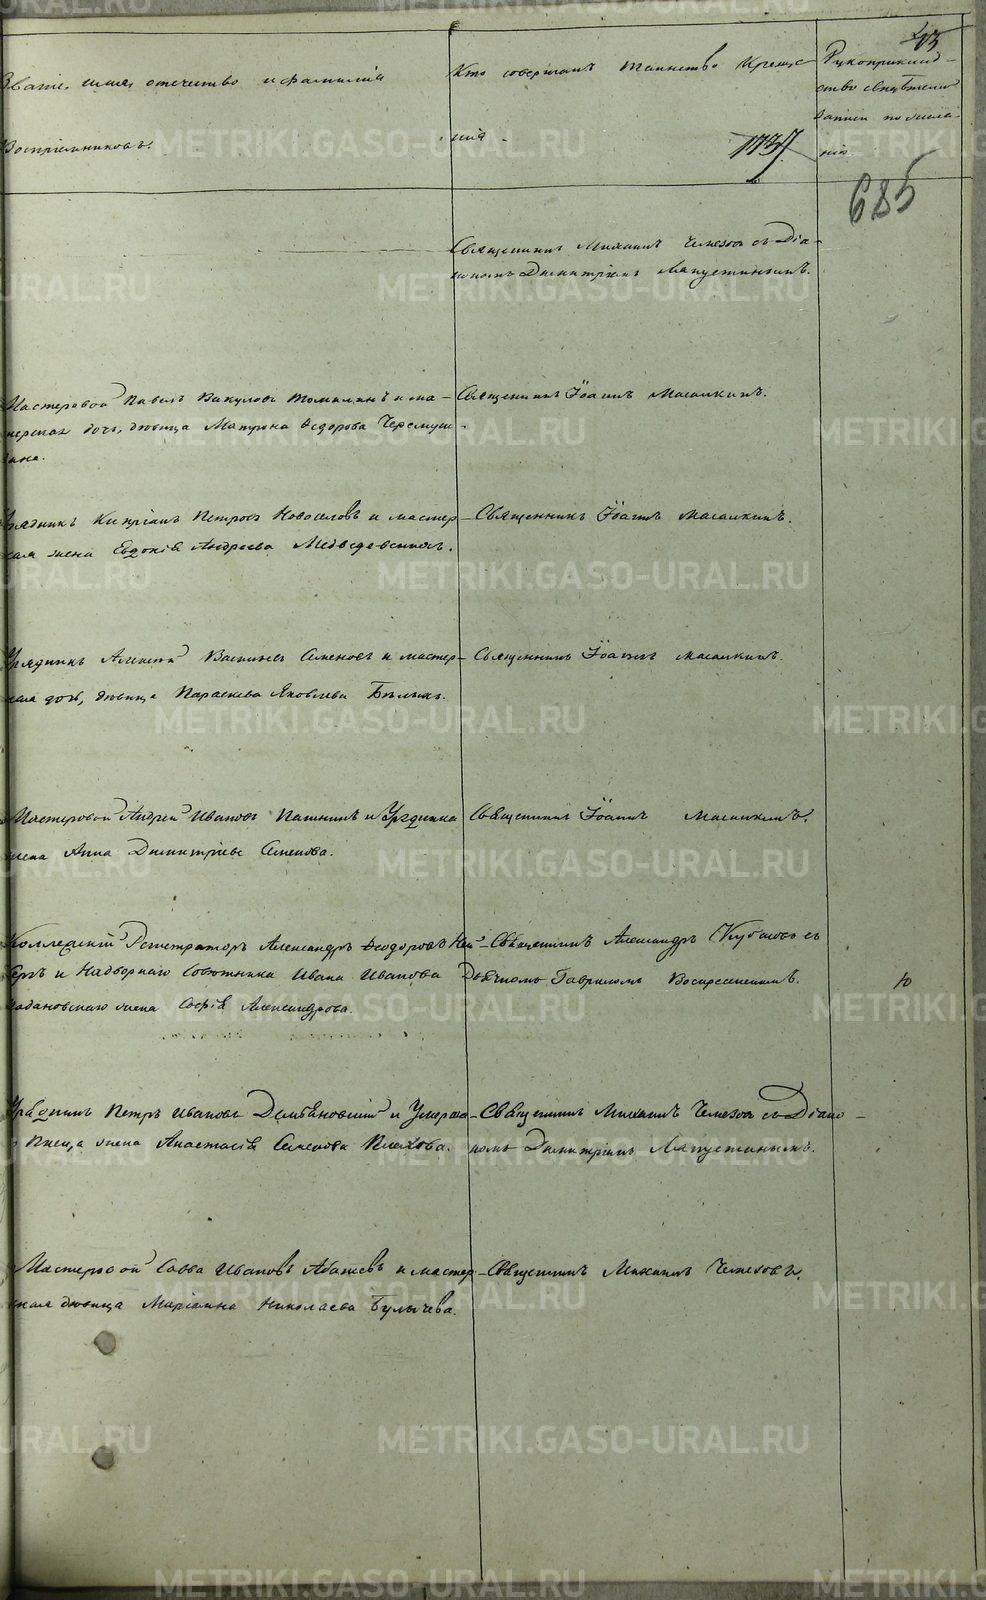 43
Званіе, имя, отечество и фамилія
Воспріемниковъ.
Кто совершалъ таинство Креще-
нія.
1137
Рукоприклад-
ство свидѣтелей
записи по жела-
нію
685
Священникъ Михаилъ Чемезовъ съ Діа-
кономъ Димитріемъ Лапустинымъ.
Мастеровой Павелъ Викуловъ Томилинъ и ма-
терская дочь, дѣвица Матрона Ѳедорова Черемух-
ина.
Священникъ Іоаннъ Масалкинъ.
Урядникъ Кипріанъ Петровъ Новоселовъ и мастер-
ская жена Евдокія Андреева Медведевскихъ.
Священникъ Іоаннъ Масалкинъ.
Урядникъ Алексѣй Васильевъ Семеновъ и мастер-
ская дочь, дѣвица Параскева Яковлева Бѣлыхъ.
Священникъ Іоаннъ Масалкинъ.
Мастеровой Андрей Ивановъ Пашнинъ и Урядника
жена Анна Димитріева Семенова.
Священникъ Іоаннъ Масалкинъ.
Коллежскій Регистраторъ Александръ Ѳеодоровъ
и Надворнаго Совѣтника Ивана Иванова
жена Софія Александрова.
Священникъ Александръ Кубасовъ съ
Дьячкомъ Гавріиломъ Воскресенскимъ.
Урядникъ Петръ Ивановъ Домбановскій и Умерша-
го Писца жена Анастасія Семенова Плехова.
Священникъ Михаилъ Чемезовъ съ Діако-
номъ Димитріемъ Лапустинымъ.
Мастеровой Савва Ивановъ Абашевъ и мастер-
ская дѣвица Маріамна Николаева Булычева.
Священникъ Михаилъ Чемезовъ.
METRIKI.GASO-URAL.RU